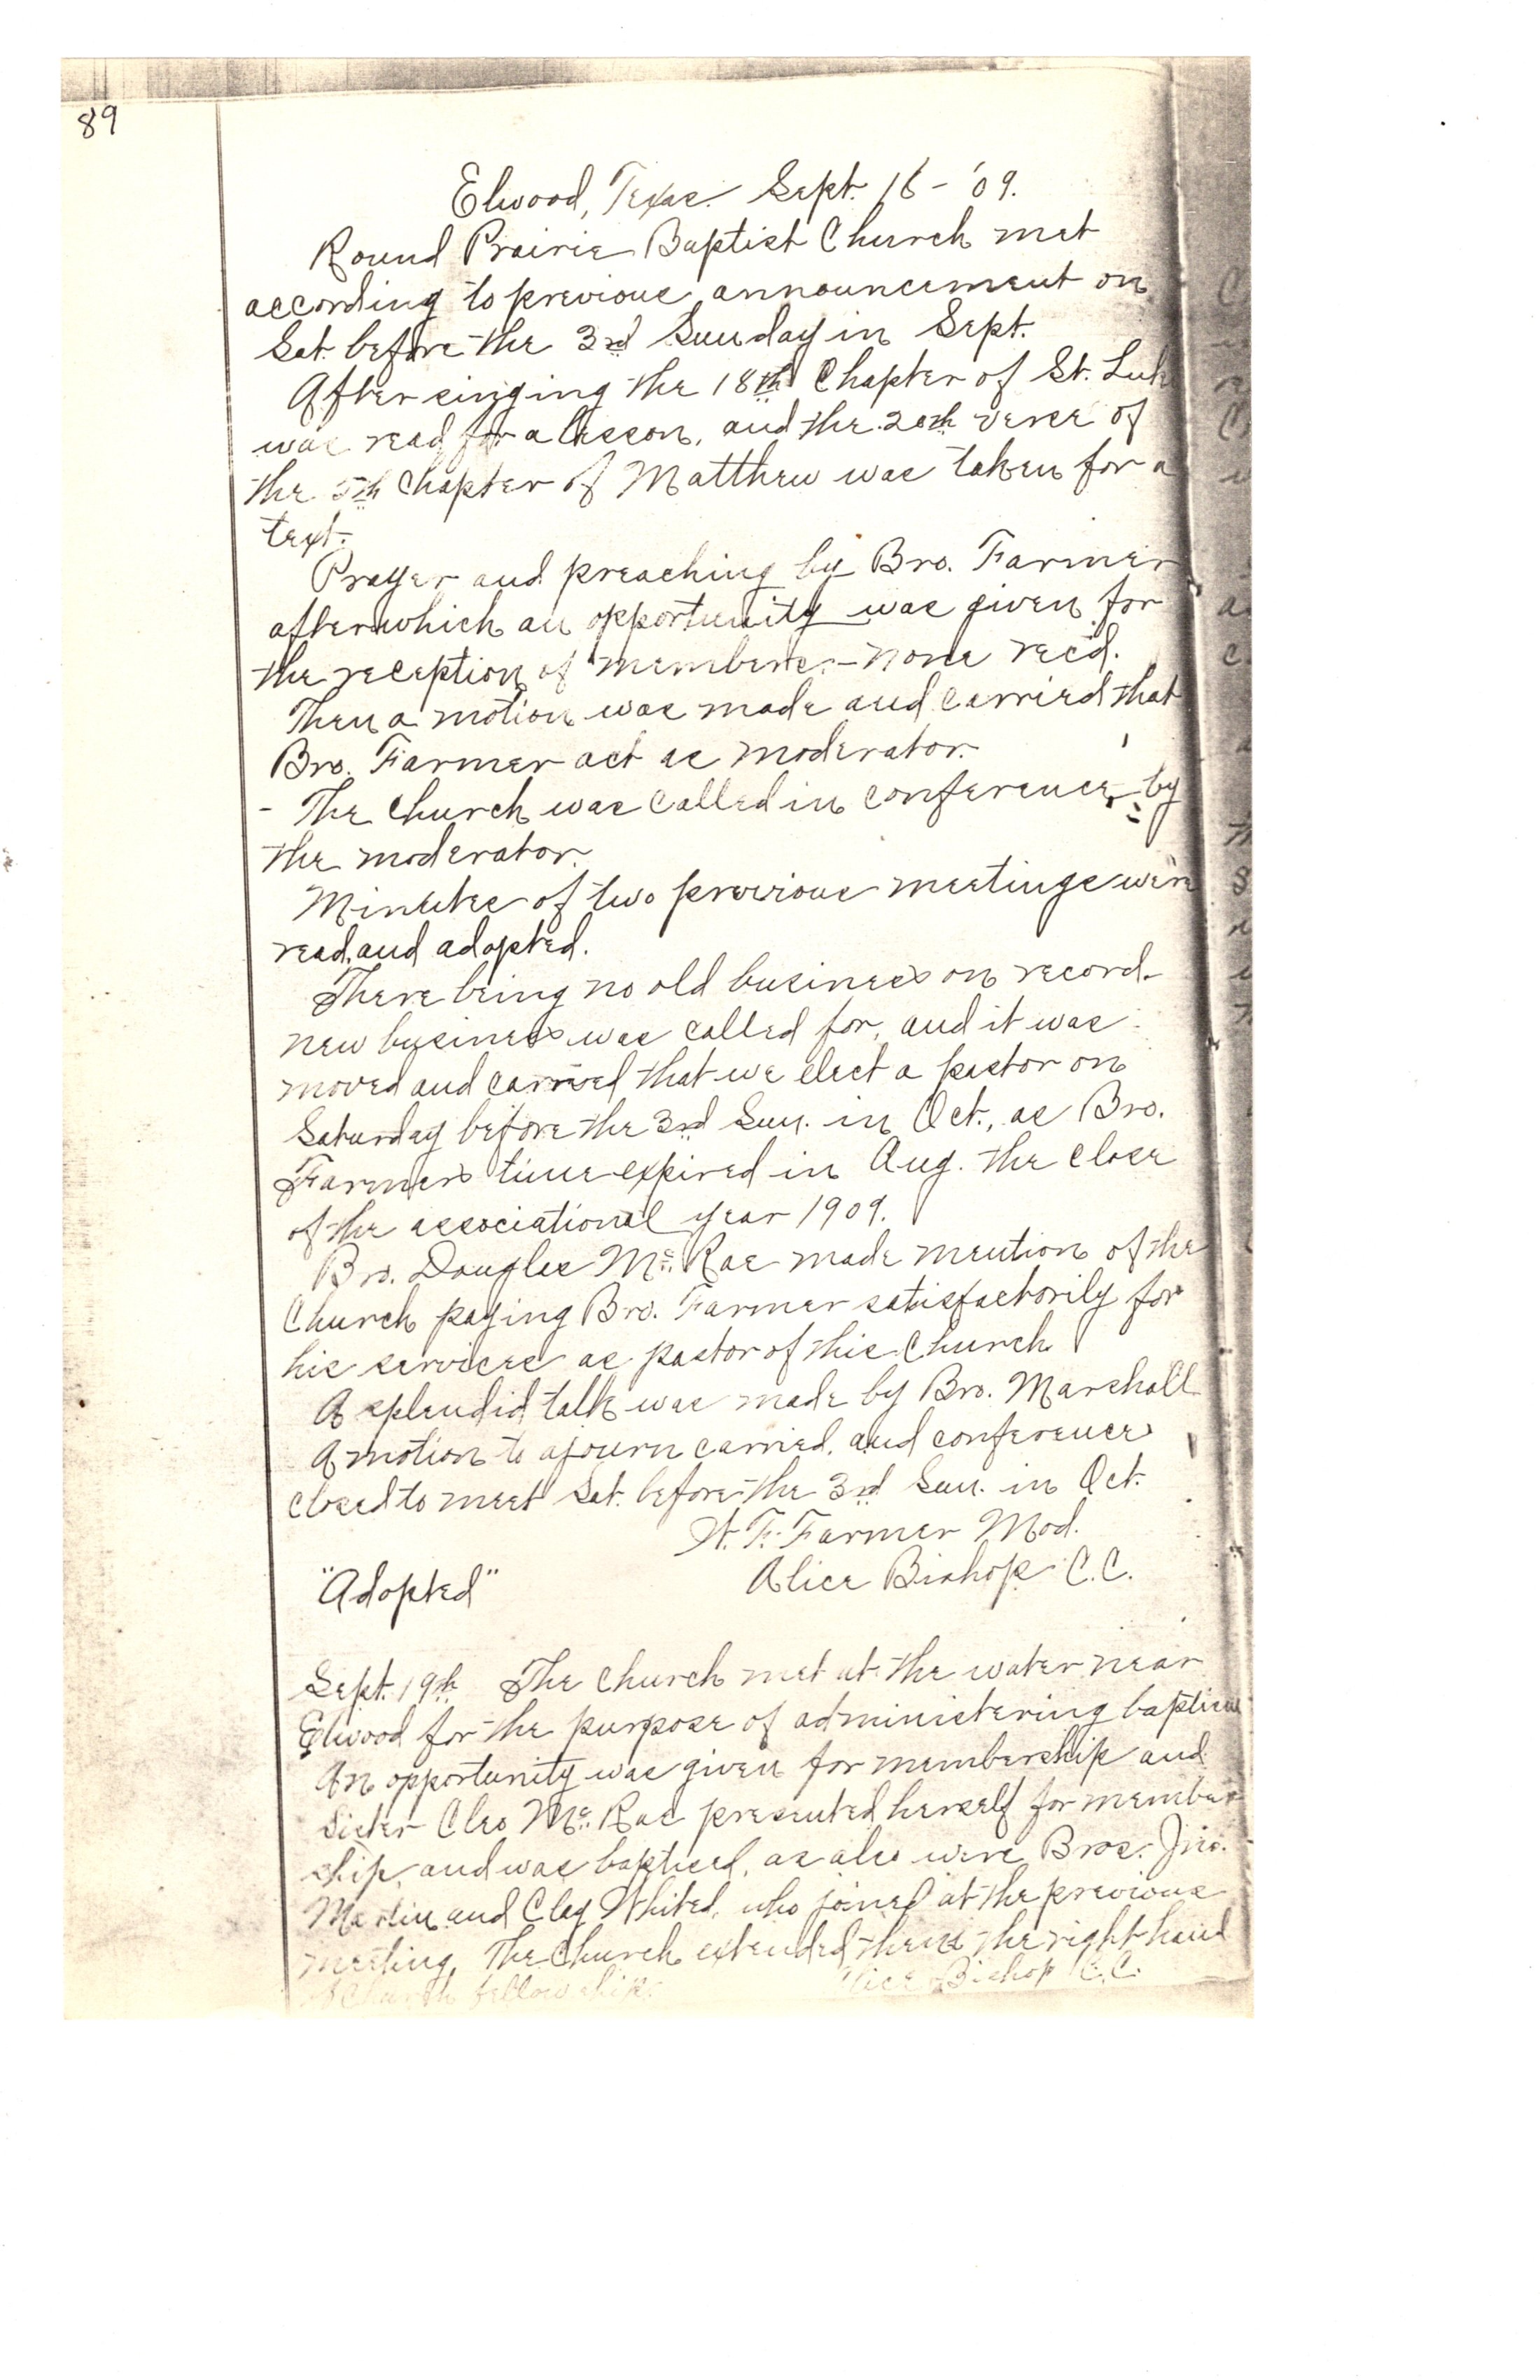 89
Elwood, Texas. Sept. 16 - '09.
Round Prairie Baptist Church met
according to previous announcement on
Sat. before the 3rd Sunday in Sept.
After singing the 18th Chapter of St. Luke
was read for a lesson, and the 20th verse of
the 5th Chapter of Matthew was taken for a
text.
Prayer and preaching by Bro. Farmer
after which an opportunity was given for
the reception of members - none rec'd.
Then a motion was made and carried that
Bro. Farmer act as moderator.
- The Church was called in conference by
the moderator.
Minutes of two previous meetings were
read, and adopted.
There being no old business on record
new business was called for, and it was
moved and carried that we elect a pastor on
Saturday before the 3rd Sun. in Oct., as Bro.
Farmers time expired in Aug. the close
of the associational year 1909.
Bro. Douglas Mc. Rae made mention of the
Church paying Bro. Farmer satisfactorily for
his services as pastor of this Church.
A splendid talk was made by Bro. Marshall
A motion to ajourn carried, and conference
closed to meet Sat. before the 3rd Sun. in Oct.
W. F. Farmer Mod.
"Adopted" Alice Bishop C.C.
Sept. 19th The Church met at the water near
Elwood for the purpose of administering baptism
An opportunity was given for membership and
Sister Cleo Mc. Rae presented herself for member
ship, and was baptised, as also were Bros. Jno.
Martin and Clay Whited, who joined at the previous
meeting. The Church extended them the right hand
of Church fellowship. Alice Bishop C.C.